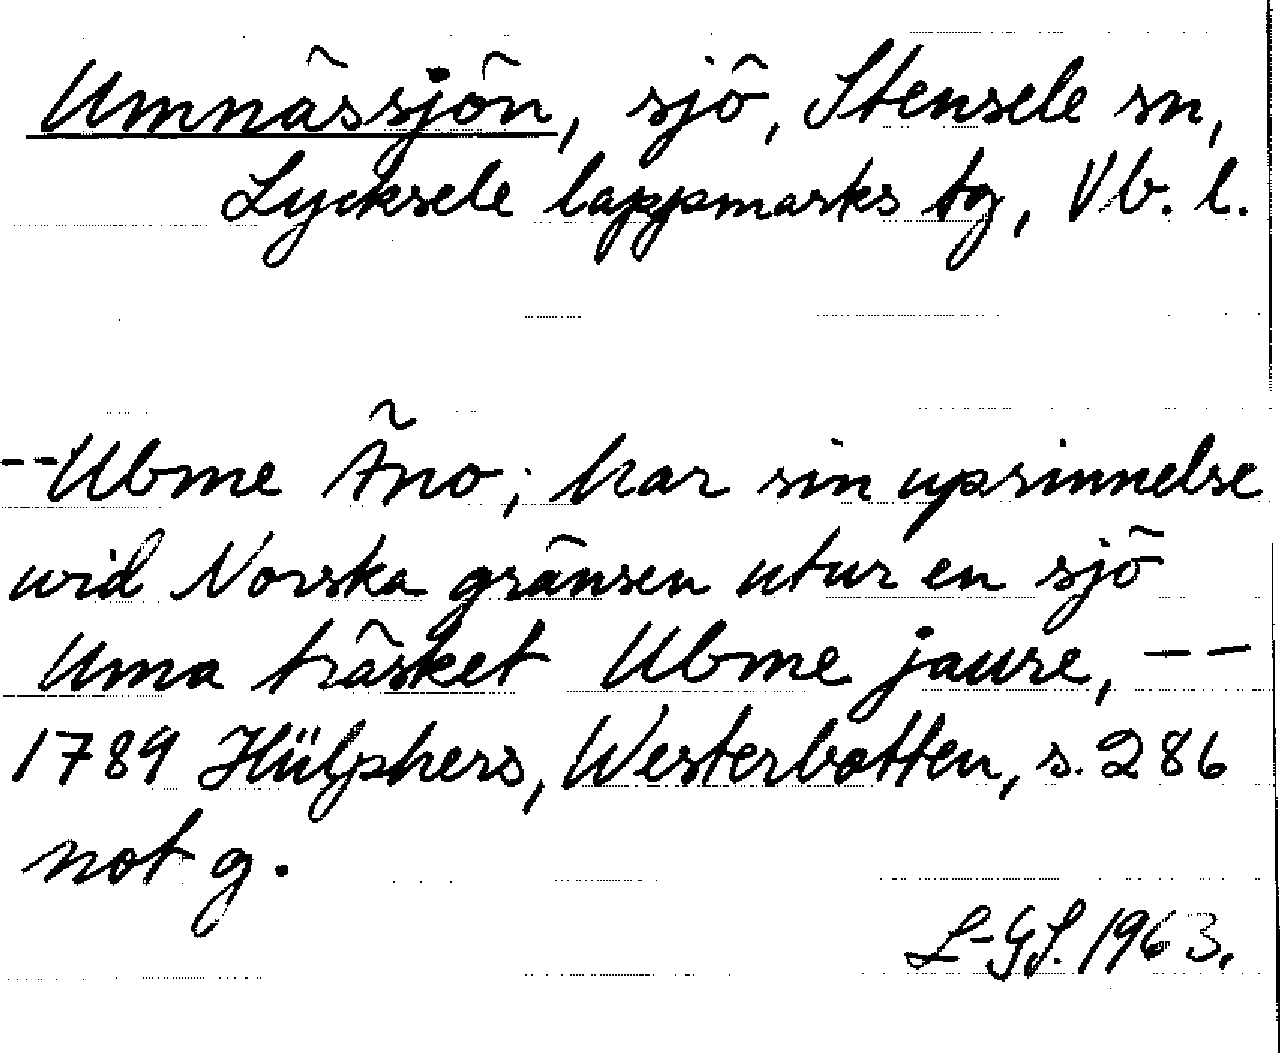 Umnässjön, sjö, Stensele sn,
Lycksele lappmarks tg, Vb. l.
--Ubme Äno; har sin uprinnelse
wid Norska gränsen utur en sjö
Uma träsket Ubme jaure, --
1789 Hülphers, Westerbotten, s. 286
not g.
L-GS. 1963.